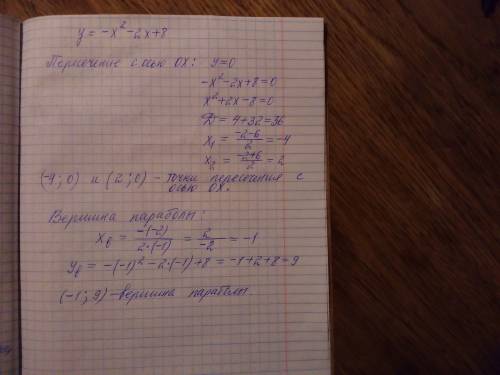 y = -x² - 2x + 8
Пересечение с осью OX: y = 0
-x² - 2x + 8 = 0
x² + 2x - 8 = 0
D = 4 + 32 = 36
x₁ = (-2-6)/2 = -4
x₂ = (-2+6)/2 = 2
(-4; 0) и (2; 0) - точки пересечения с
осью OX.
Вершина параболы:
x_в = -(-2)/(2·(-1)) = 2/-2 = -1
y_в = -(-1)² - 2·(-1) + 8 = -1 + 2 + 8 = 9
(-1; 9) - вершина параболы.